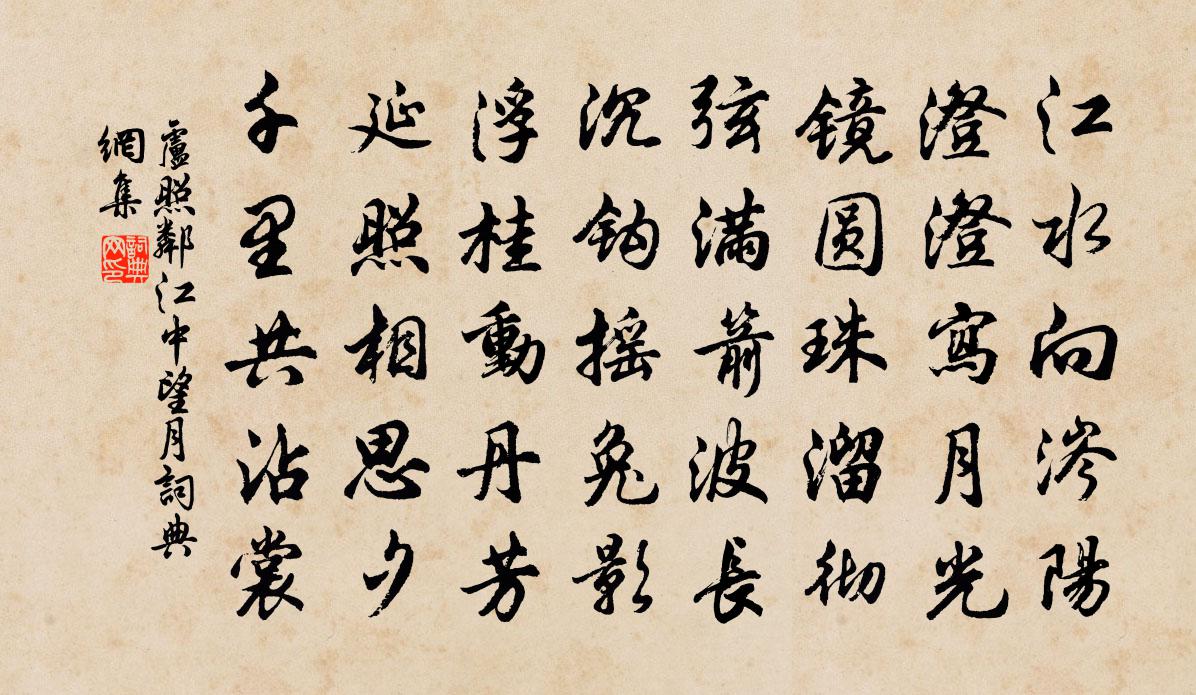 江水向涔陽
澄澄寫月光
镜圓珠溜彻
弦满箭波長
沉钩摇兔影
浮桂動丹芳
延照相思夕
千里共沾裳
盧照鄰江中望月詞典
網集
詞典网印